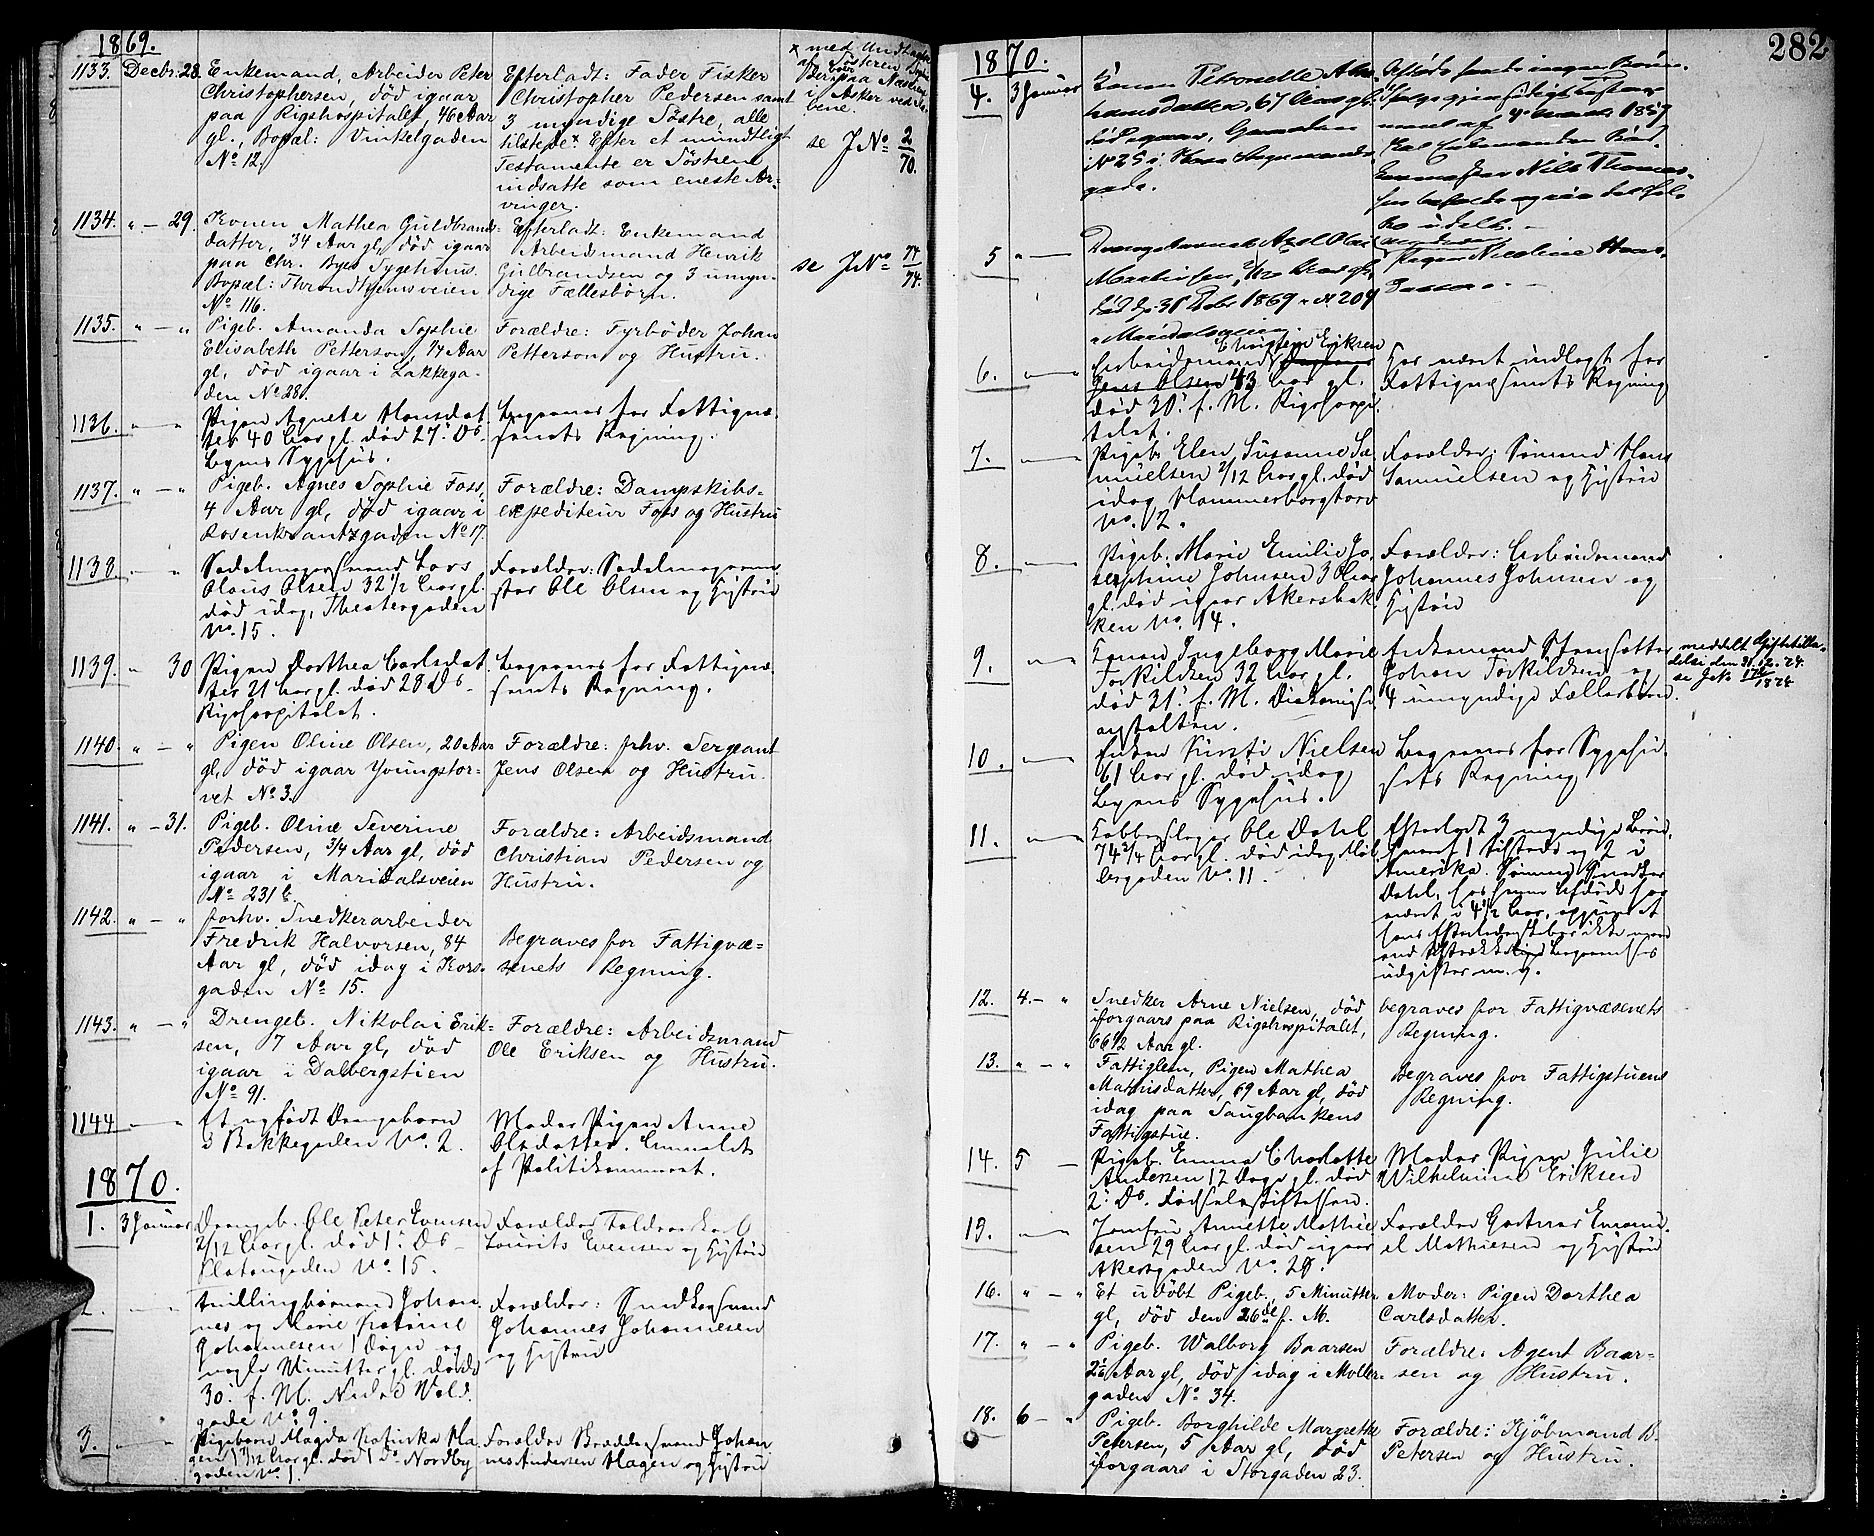 1869.
1133. Decbr. 28. Enkemand, Arbeider Peter
Christophersen, död igaar
paa Rigshospitalet, 46 Aar
gl., Bopæl: Vinkelgaden
No 12.
Efterladt: Fader Fisker
Christopher Pedersen samt
3 myndige Søstre, alle
tilstede x Efter et mundtligt
Testamente er Søstrene
indsatte som eneste Ar-
vinger.
x med Undtagelse
af Søsteren
i Asker ved
bene.
se JNo 2/70.
1134. " — 29. Konen Mathea Guldbrands-
datter, 34 Aar gl, död igaar
paa Chr. Byes Sygehuus.
Bopæl: Throndhjemsveien
No 116.
Efterladt: Enkemand
Arbeidsmand Henrik
Gulbrandsen og 3 umyn-
dige Fællesbörn.
se JNo 77/74.
1135. " — " Pigeb. Amanda Sophie
Elisabeth Petterson, 1/4 Aar
gl, död igaar i Lakkega-
den No 28.
Forældre: Fyrböder Johan
Petterson og Hustru.
1136. Pigen Agnete Hansdat
ter 40 Aar gl. död 27' Ds.
Byens Sygehus.
Begraves for Fattigvæ
senets Regning.
1137. " — " Pigeb. Agnes Sophie Foss,
4 Aar gl, död igaar i
Rosenkrantzgaden No 17.
Forældre: Dampskibs-
expediteur Foss og Hustru
1138. Sadelmagersvend Lars
Olaus Olsen 32 1/2 Aar gl.
död idag, Theatergaden
No. 15.
Forældre: Sadelmagerme
ster Ole Olsen og Hustru
1139. " 30 Pigen Dorthea Carlsdat
ter 21 Aar gl. död 28 Ds.
Rigshospitalet.
Begraves for Fattigvæ
senets Regning.
1140. " — " Pigen Oline Olsen, 20 Aar
gl, död igaar Youngstor-
vet No 3.
Forældre: forhv. Sergeant
Jens Olsen og Hustru.
1141. " — 31. Pigeb. Oline Severine
Pedersen, 3/4 Aar gl, död
igaar i Maridalsveien
No 231 b.
Forældre: Arbeidsmand
Christian Pedersen og
Hustru.
1142. " — " forhv. Snedkerarbeider
Fredrik Halvorsen, 84
Aar gl, död idag i Kors-
gaden No 15.
Begraves for Fattigvæ-
senets Regning.
1143. " — " Drengeb. Nikolai Erik-
sen, 7 Aar gl, död
igaar i Dalbergstien
No 91.
Forældre: Arbeidsmand
Ole Eriksen og Hustru.
1144 Et nyfödt Drengebarn
i Bakkegaden No. 2.
Moder Pigen Anne
Olsdatter. Anmeldt
af Politikammeret.
1870.
1. 3 Januar Drengeb. Ole Peter Evensen
2/12 Aar gl. död 1' Ds
Platougaden No. 15.
Forældre Carl
Lourits Evensen og Hustru
2. Tvillingbørnene Johan
nes og Marie
Johannesen 1 Døgn og
nogle Minutter gl. døde
30' f. M.
gade No. 9.
Forældre: Snedkersvend
Johannes Johannesen
og Hustru
3. Pigebarn Magda Ha
gen 1 Aar gl. död 1' Ds Nordby
gaden No 1.
Forældre Johan
nes Andersen Hagen og Hustru
282
1870.
4. 3 Januar Konen Petronelle
67 Aar gl.
gade.
af 4 1857
Nils Thomas-
5 " — Axel Olai
Martinsen, 2/12 Aar gl.
1869 No 209
i Maridalsveien
Pigen Nicoline Hans-
6. Arbeidsmand Christen Eriksen
Jens Olsen 43 Aar gl.
död 30' f. M. Rigshospi
talet.
Har været indlagt for
Fattigvæsenets Regning
7. Pigeb. Elen Susanne Sa
muelsen 2/12 Aar gl. död
idag Hammersborgtorv
No. 2.
Forældre: Hans
Samuelsen og Hustru
8. Pigeb. Marie Emilie Jo
sephine Johnsen 3 Aar
gl. död igaar Akersbak
ken No. 14.
Forældre: Arbeidsmand
Johannes Johnsen og
Hustru
9. Konen Ingeborg Marie
Torkildsen 32 Aar gl.
död 31' f. M. Diakonisse
anstalten.
Enkemand
Johan Torkildsen og
4 umyndige Fællesbørn.
meddelt Skiftetilla-
delse den 31.12.74.
se JNo 1874
10. Enken Kirsti Nielsen
61 Aar gl. död idag
Byens Sygehus.
Begraves for Sygehu
sets Regning
11. Kobberslager Ole Dahl
74 3/4 Aar gl. död idag Møl
lergaden No. 11.
Efterladt 3 myndige Børn,
hvoraf 1 tilstede og 2 i
Amerika. Sønnen Snedker
Dahl, hos hvem Afdøde har
været i 4 1/2 Aar,
hans Efterladenskaber ikke mere
end Begravelses
udgifter m. v.
12. 4. — " Snedker Arne Nielsen, död
iforgaars paa Rigshospitalet,
66 1/2 Aar gl.
begraves for Fattigvæsenets
Regning.
13. " — " Fattiglem, Pigen Mathea
Mathisdatter, 69 Aar gl, död
idag paa Saugbankens
Fattigstue.
Begraves for Fattigstuens
Regning.
14. 5 — Pigeb. Emma Charlotte
Andersen 12 Dage gl. död
2' Ds. Fødselsstiftelsen.
Moder Pigen Julie
Wilhelmine Eriksen
15. Jomfru Annette Mathie
sen 29 Aar gl. död igaar
Akersgaden No. 29.
Forældre Gartner Emanu
el Mathiesen og Hustru
16. " — " Et udöbt Pigeb., 5 Minutter
gl, död den 26de f. M.
Moder: Pigen Dorthea
Carlsdatter.
17. " — " Pigeb. Walborg Baarsen
Aar gl, död idag i Möller-
gaden No 34.
Forældre: Agent Baar-
sen og Hustru.
18. 6 — " Pigeb. Borghilde Margrethe
Petersen, 5 Aar gl, död
iforgaars i Storgaden 23.
Forældre: Kjöbmand B.
Petersen og Hustru.